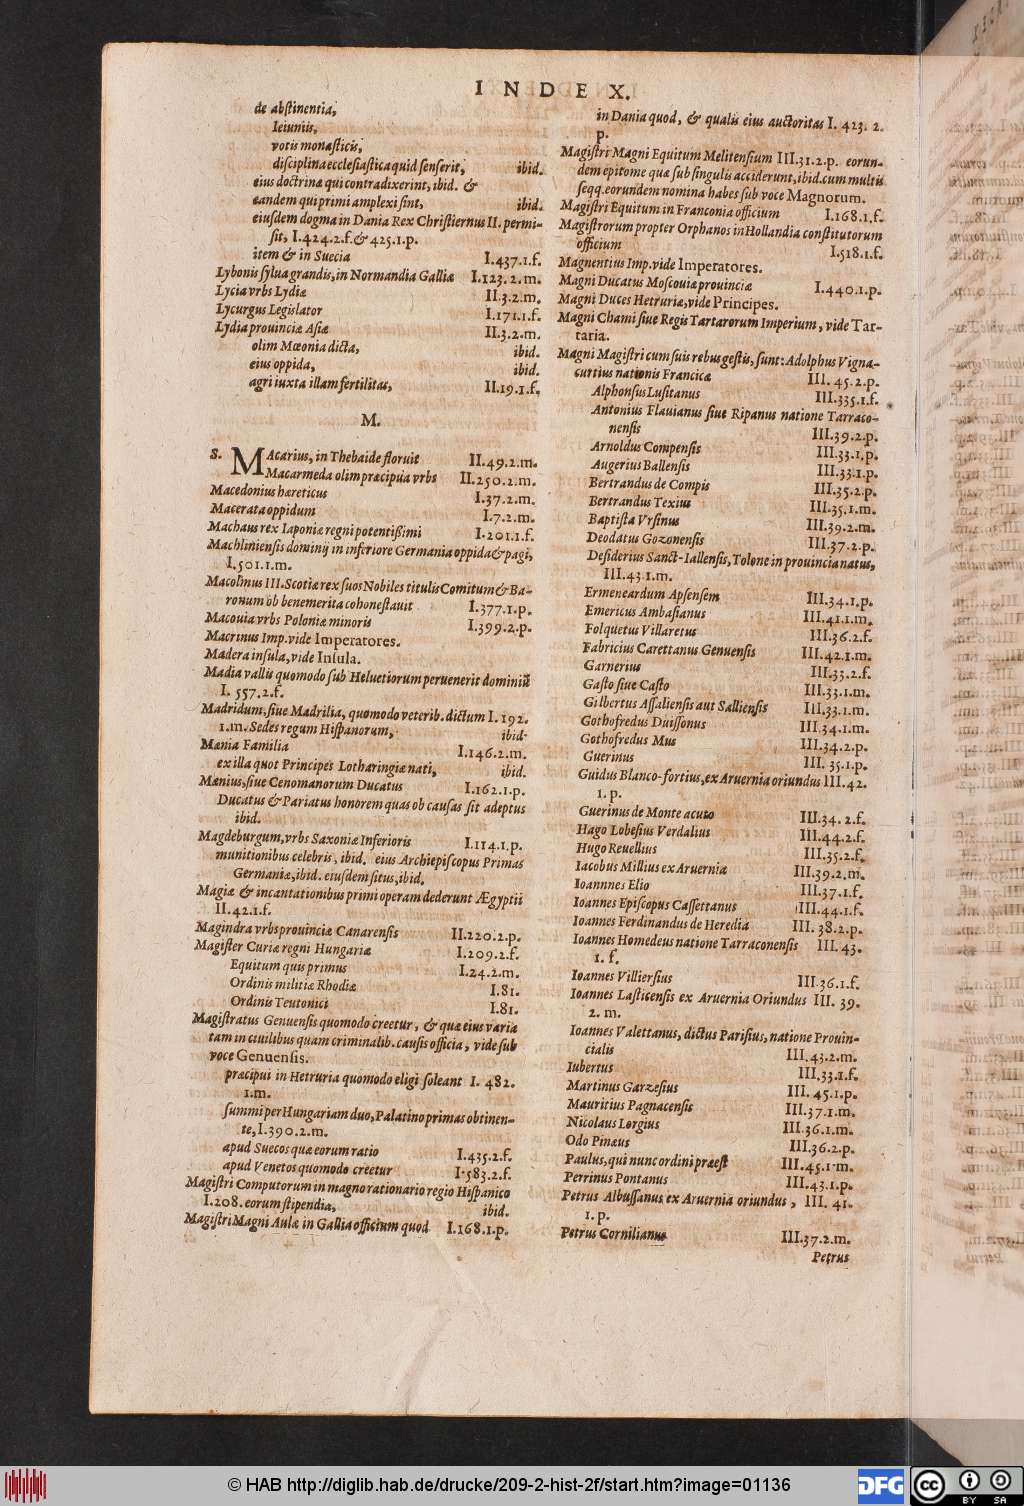 INDEX.
de abſtinentia,
Ieiuniis,
votis monaſticis,
diſciplina eccleſiaſtica quid ſenſerit, ibid.
eius doctrinæ qui contradixerint, ibid. &
eandem qui primi amplexi ſint, ibid.
eiuſdem dogma in Dania Rex Chriſtiernus II. permi-
ſit, I.424.2.f.& 425.1.p.
item & in Suecia I.437.1.f.
Lybonis ſylua grandis, in Normandia Galliæ I.123.2.m.
Lycia vrbs Lydiæ II.3.2.m.
Lycurgus Legislator I.171.1.f.
Lydia prouinciæ Aſiæ II.3.2.m.
olim Mœonia dicta, ibid.
eius oppida, ibid.
agri iuxta illam fertilitas, II.19.1.f.
M.
S. MAcarius, in Thebaide floruit II.49.2.m.
Macarmeda olim præcipua vrbs II.250.2.m.
Macedonius hæreticus I.37.2.m.
Macerata oppidum I.7.2.m.
Machaus rex Iaponiæ regni potentißimi I.201.1.f.
Machlinienſis dominij in inferiore Germania oppida & pagi,
I.501.1.m.
Macolinus III. Scotiæ rex ſuos Nobiles titulis Comitum & Ba-
ronum ob benemerita cohoneſtauit I.377.1.p.
Macouia vrbs Poloniæ minoris I.399.2.p.
Macrinus Imp. vide Imperatores.
Madera inſula, vide Inſula.
Madia vallis quomodo ſub Heluetiorum peruenerit dominiũ
I. 557.2.f.
Madridum, ſiue Madrilia, quomodo veterib. dictum I. 192.
1.m. Sedes regum Hiſpanorum, ibid.
Mænia Familia I.146.2.m.
ex illa quot Principes Lotharingiæ nati, ibid.
Mænius, ſiue Cenomanorum Ducatus I.162.1.p.
Ducatus & Pariatus honorem quas ob cauſas ſit adeptus
ibid.
Magdeburgum, vrbs Saxoniæ Inferioris I.114.1.p.
munitionibus celebris, ibid. eius Archiepiſcopus Primas
Germaniæ, ibid. eiuſdem ſitus, ibid.
Magiæ & incantationibus primi operam dederunt Ægyptii
II.42.1.f.
Magindra vrbs prouinciæ Canarenſis II.220.2.p.
Magiſter Curiæ regni Hungariæ I.209.2.f.
Equitum quis primus I.24.2.m.
Ordinis militiæ Rhodiæ I.81.
Ordinis Teutonici I.81.
Magiſtratus Genuenſis quomodo creetur, & quæ eius varia
tam in ciuilibus quam criminalib. cauſis officia, vide ſub
voce Genuenſis.
præcipui in Hetruria quomodo eligi ſoleant I. 482.
1.m.
ſummi per Hungariam duo, Palatino primas obtinen-
te, I.390.2.m.
apud Suecos quæ eorum ratio I.435.2.f.
apud Venetos quomodo creetur I.583.2.f.
Magiſtri Computorum in magno rationario regio Hiſpanico
I.208. eorum ſtipendia, ibid.
Magiſtri Magni Aulæ in Gallia officium quod I.168.1.p.
in Dania quod, & qualis eius auctoritas I. 423. 2.
p.
Magiſtri Magni Equitum Melitenſium III.31.2.p. eorun-
dem epitome quæ ſub ſingulis acciderunt, ibid. cum multis
ſeqq. eorundem nomina habes ſub voce Magnorum.
Magiſtri Equitum in Franconia officium I.168.1.f.
Magiſtrorum propter Orphanos in Hollandia conſtitutorum
officium I.518.1.f.
Magnentius Imp. vide Imperatores.
Magni Ducatus Moſcouiæ prouinciæ I.440.1.p.
Magni Duces Hetruriæ, vide Principes.
Magni Chami ſiue Regis Tartarorum Imperium, vide Tar-
taria.
Magni Magiſtri cum ſuis rebus geſtis, ſunt: Adolphus Vigna-
curtius nationis Francicæ III. 45.2.p.
Alphonſus Luſitanus III.335.1.f.
Antonius Flauianus ſiue Ripanus natione Tarraco-
nenſis III.39.2.p.
Arnoldus Compenſis III.33.1.p.
Augerius Ballenſis III.33.1.p.
Bertrandus de Compis III.35.2.p.
Bertrandus Texius III.35.1.m.
Baptiſta Vrſinus III.39.2.m.
Deodatus Gozonenſis III.37.2.p.
Deſiderius Sanct-Iallenſis, Tolone in prouincia natus,
III.43.1.m.
Ermeneardum Apſenſem III.34.1.p.
Emericus Ambaſianus III.41.1.m.
Folquetus Villaretus III.36.2.f.
Fabricius Carettanus Genuenſis III.42.1.m.
Garnerius III.33.2.f.
Gaſto ſiue Caſto III.33.1.m.
Gilbertus Aſſalienſis aut Sallienſis III.33.1.m.
Gothofredus Duiſſonus III.34.1.m.
Gothofredus Mus III.34.2.p.
Guerinus III. 35.1.p.
Guidus Blanco-fortius, ex Aruernia oriundus III.42.
1. p.
Guerinus de Monte acuto III.34. 2.f.
Hago Lobeſius Verdalius III.44.2.f.
Hugo Reuellius III.35.2.f.
Iacobus Millius ex Aruernia III.39.2.m.
Ioannnes Elio III.37.1.f.
Ioannes Epiſcopus Caſſettanus III.44.1.f.
Ioannes Ferdinandus de Heredia III. 38.2.p.
Ioannes Homedeus natione Tarraconenſis III. 43.
1. f.
Ioannes Villierſius III.36.1.f.
Ioannes Laſticenſis ex Aruernia Oriundus III. 39.
2. m.
Ioannes Valettanus, dictus Pariſius, natione Prouin-
cialis III.43.2.m.
Iubertus III.33.1.f.
Martinus Garzeſius III. 45.1.p.
Mauritius Pagnacenſis III.37.1.m.
Nicolaus Lorgius III.36.1.m.
Odo Pinæus III.36.2.p.
Paulus, qui nunc ordini præeſt III.45.1.m.
Perrinus Pontanus III.43.1.p.
Petrus Albuſſanus ex Aruernia oriundus, III. 41.
1. p.
Petrus Cornilianus III.37.2.m.
Petrus
© HAB http://diglib.hab.de/drucke/209-2-hist-2f/start.htm?image=01136
DFG
cc
BY SA